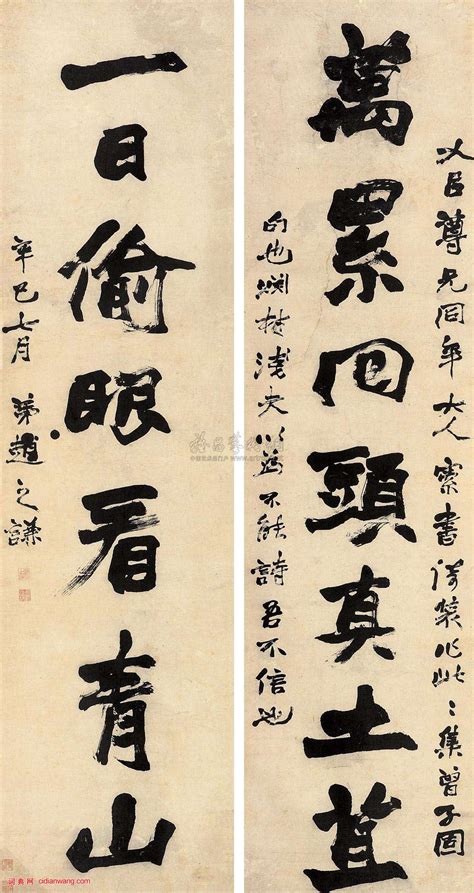 以尊兄同年大人索書倚裝作此〻集曾子固
萬累回頭真土苴
句也淵材淺夫以為不能詩吾不信也
一日偷眼看青山
辛巳七月弟趙之謙
词典网·cidianwang.com